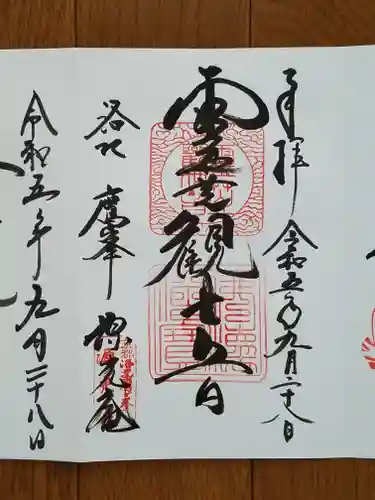 奉拝 令和五年九月二十八日
霊芝観世音
洛北 鷹峯 源光庵
令和五年九月二十八日